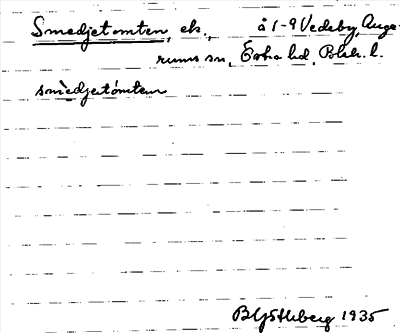 Smedjetomten, ek., å 1-9 Vedeby, Auge-
rums sn, Östra hd, Blek. l.
smèdjetómten
1935